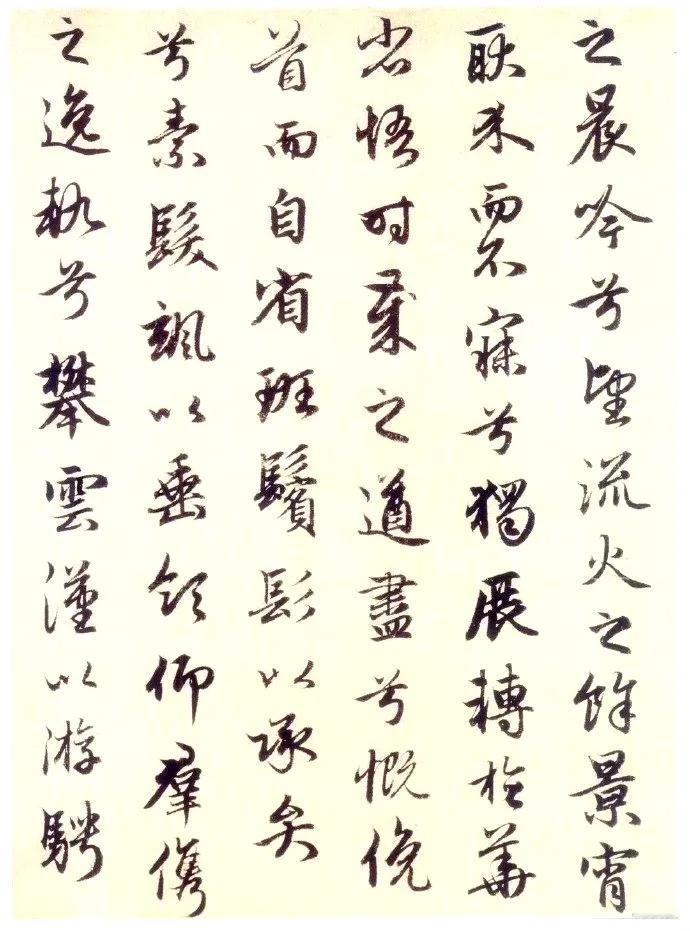 之晨吟兮望流火之餘景宵
耿介而不寐兮獨展轉於華
省悟時歲之遒盡兮慨俛
首而自省斑鬢髟以承弁
兮素髮颯以垂領仰羣儁
之逸軌兮攀雲漢以游騁